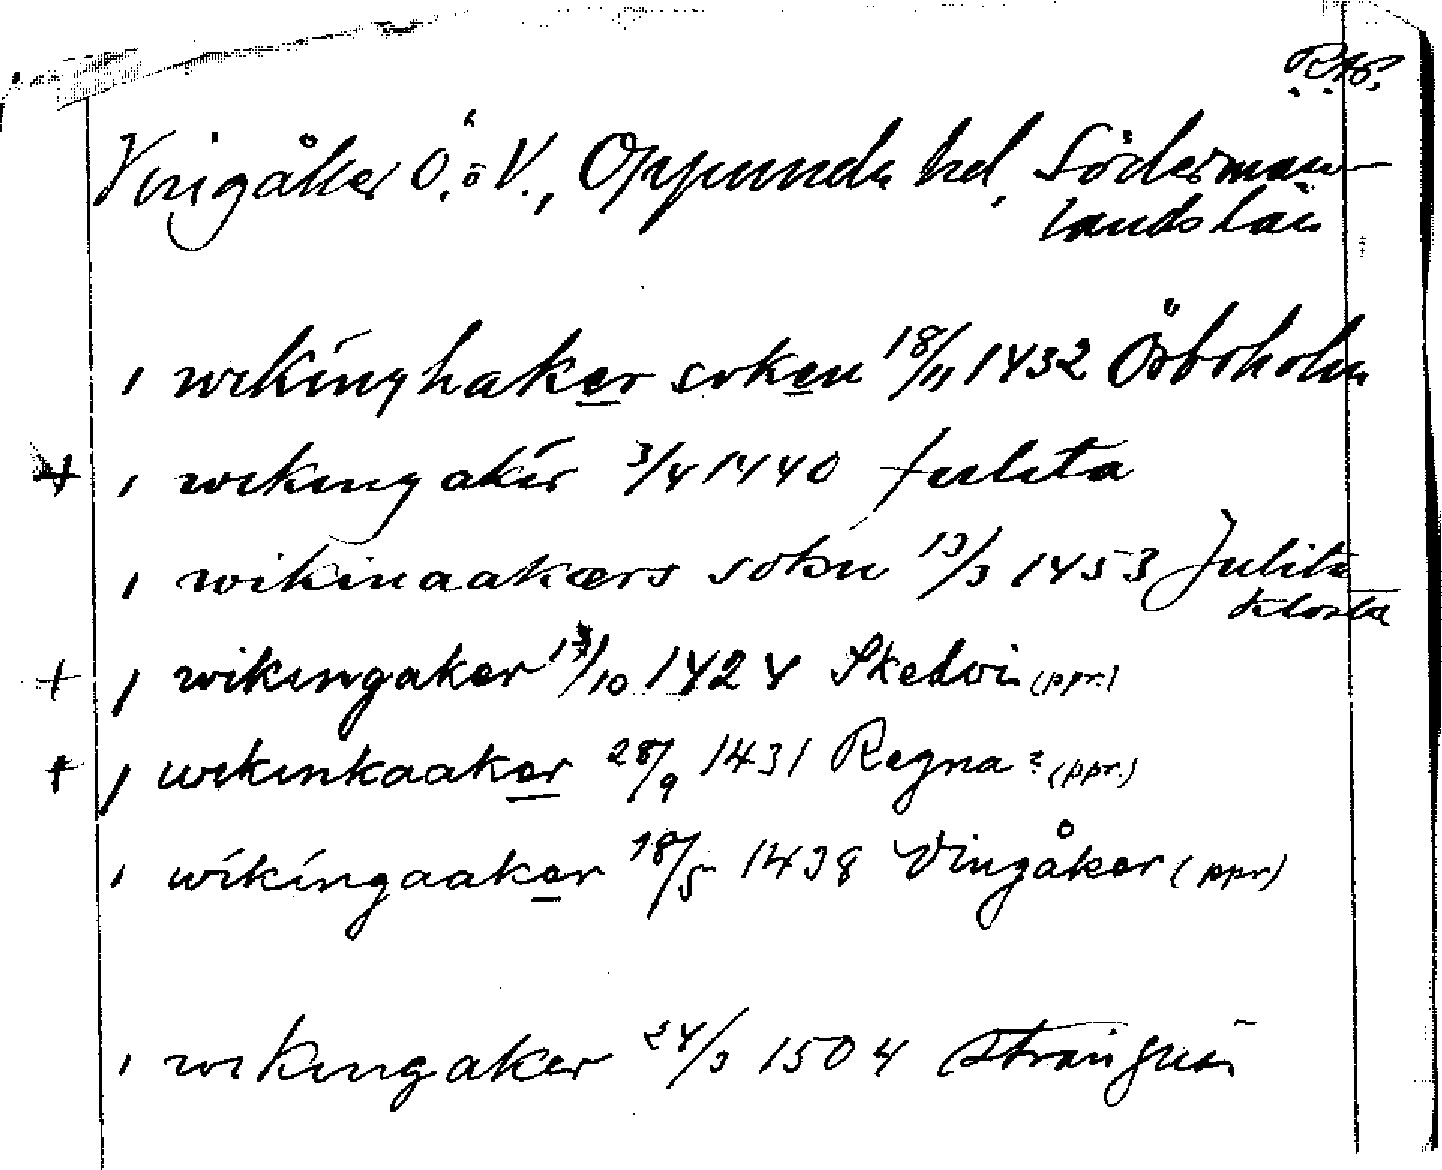 R.Ap.
Vingåker Ö. o V., Oppunda hd, Söderman-
lands län
i wikinghaker soken 18/11 1432 Österholm
+ i wikingakir 3/4 1440 Julita
i wikinaakærs sokn 13/3 1453 Julita
kloster
+ i wikingaker 13/10 1424 Skedvi (ppr.)
+ i wikinkaaker 28/9 1431 Regna? (ppr.)
i wikingaaker 18/5 1438 Vingåker (ppr)
i wikingaker 24/3 1504 Strängnäs